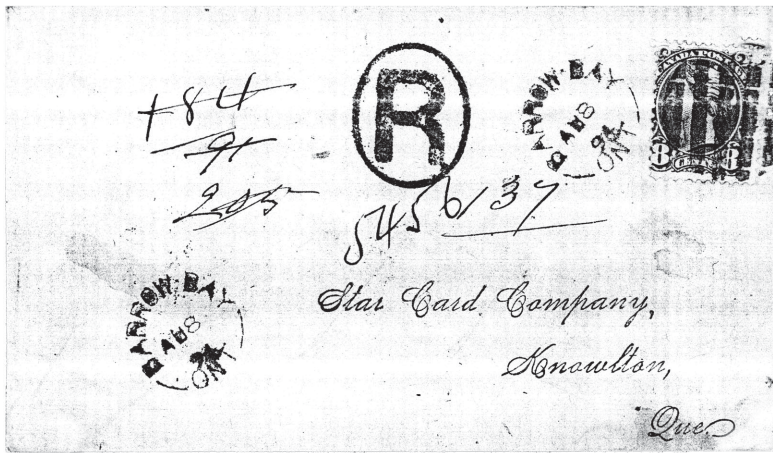 184
91
205
R
BARROW-BAY
AU 8
94
ONT
8 8
545 6137
BARROW-BAY
AU 8
94
ONT
Star Card Company,
Knowlton,
Que.